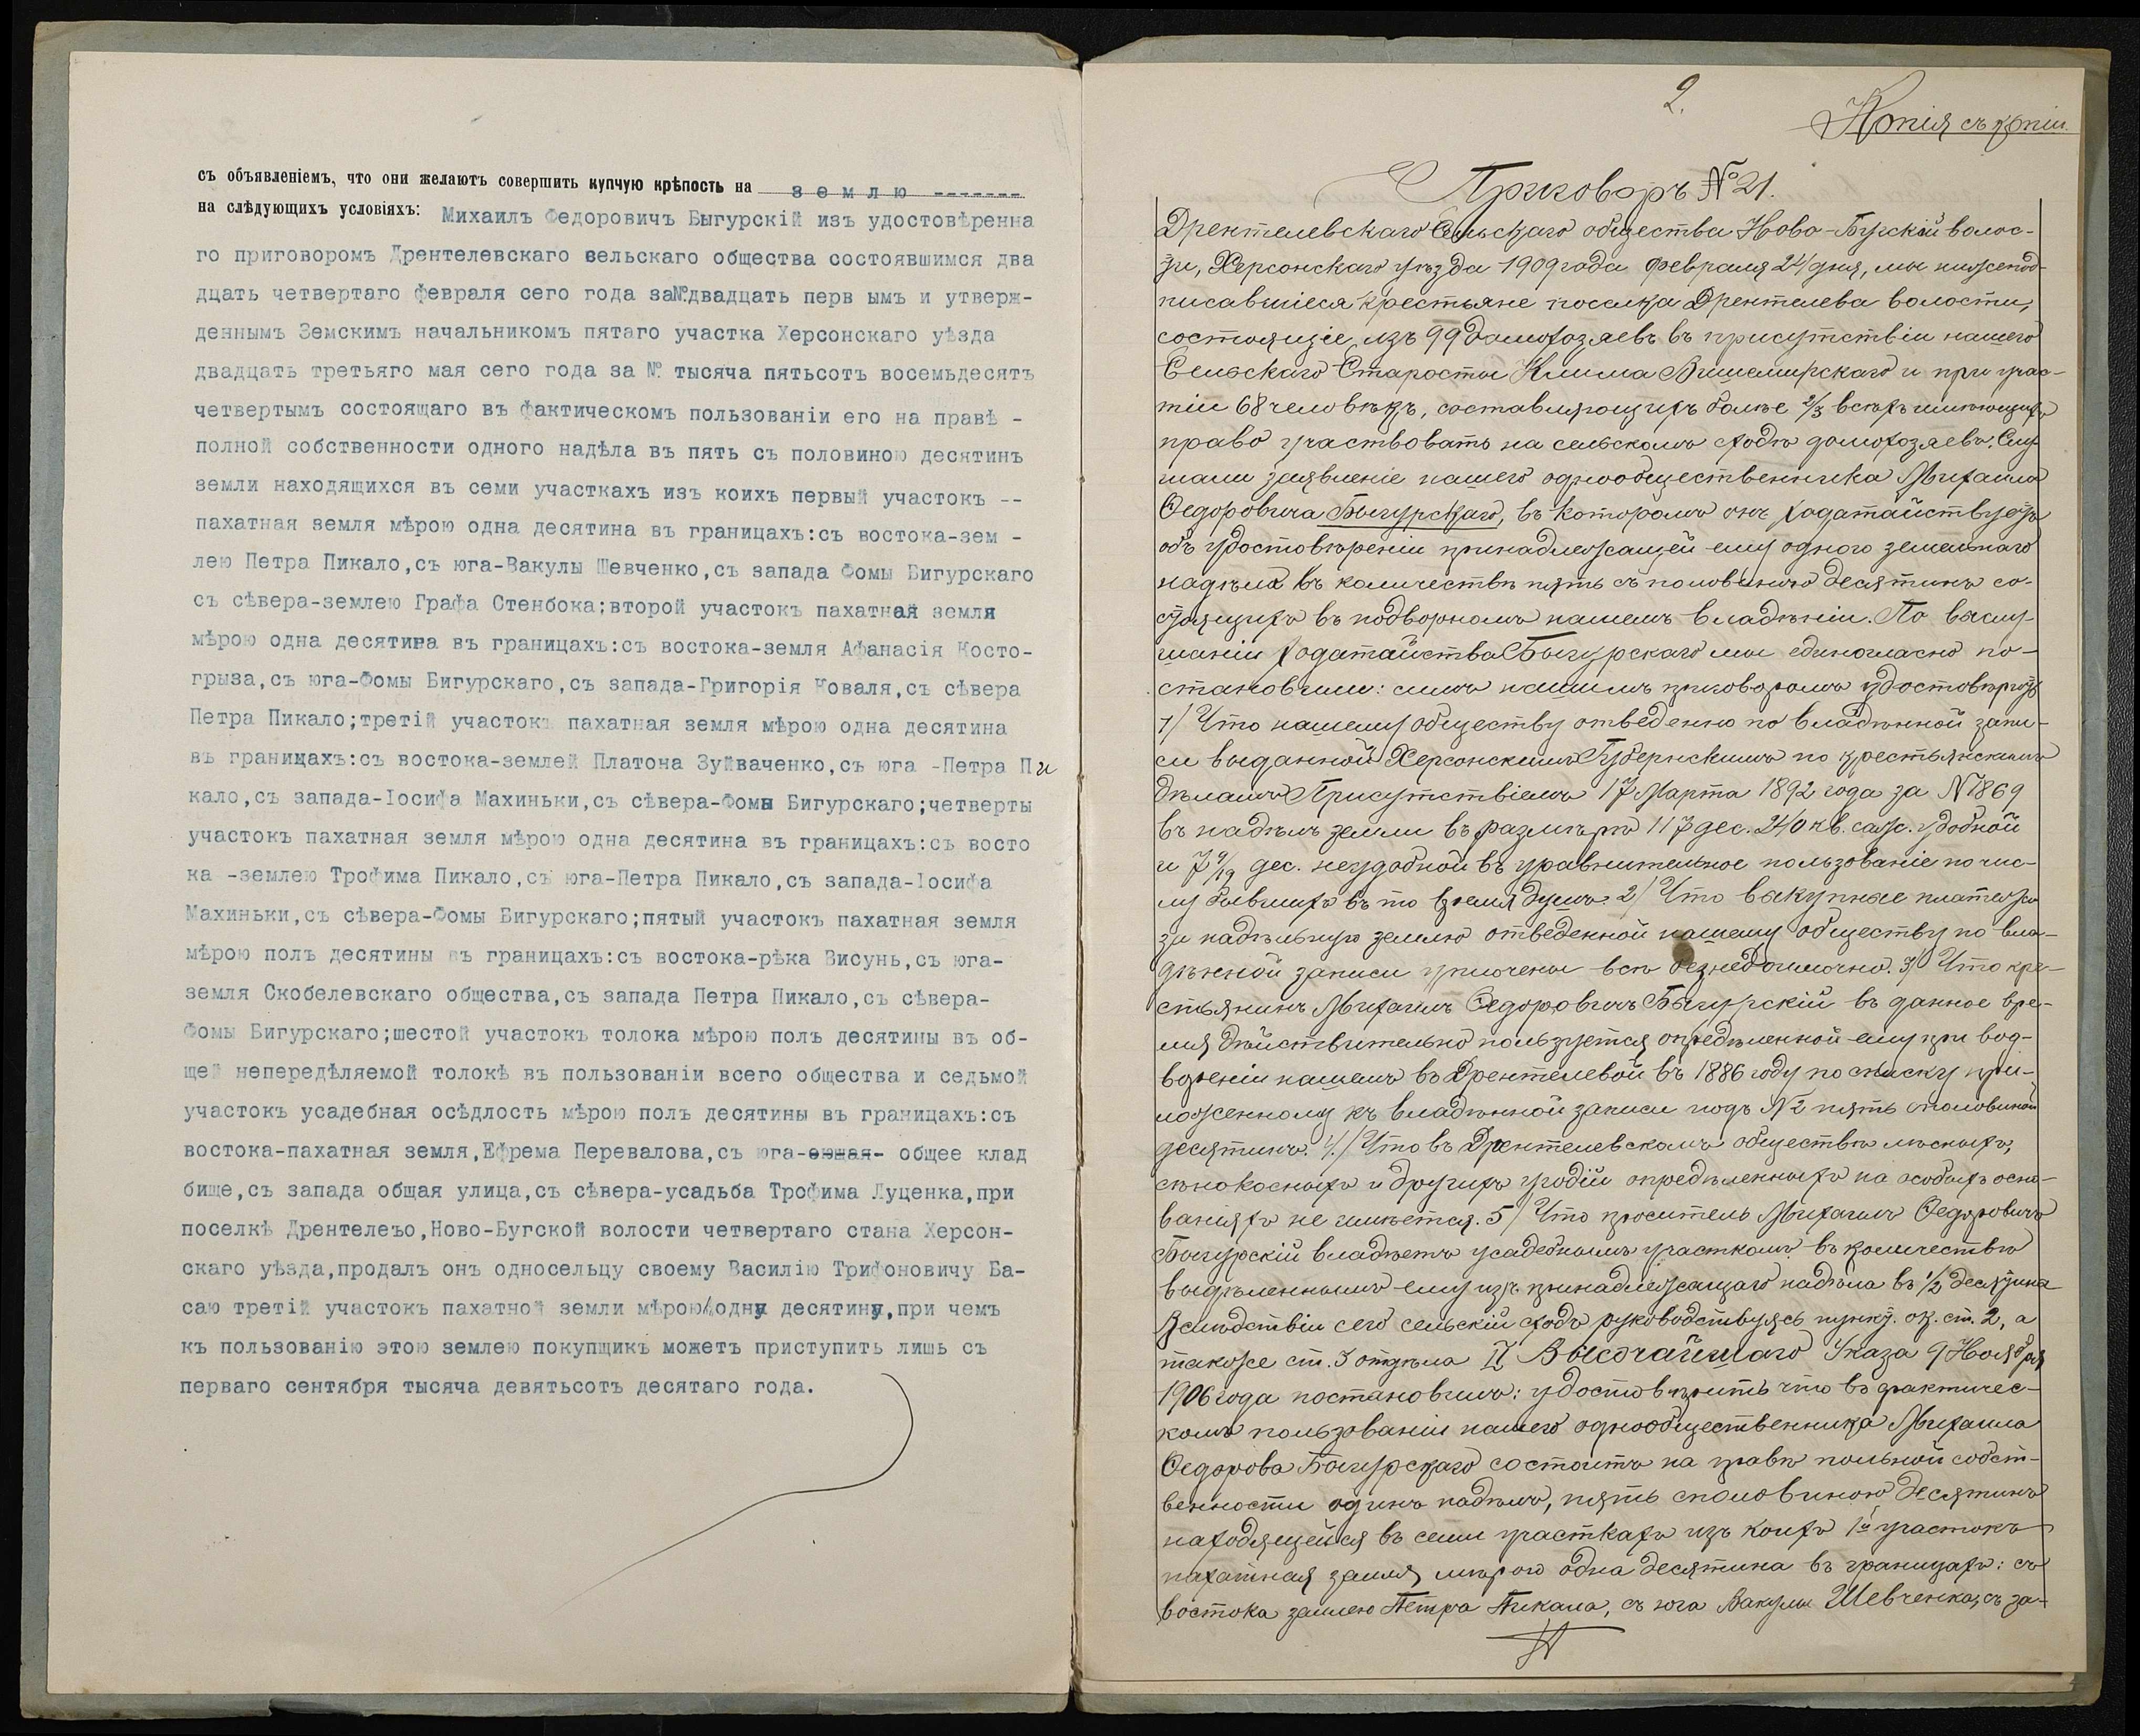 съ объявленіемъ, что они желаютъ совершить купчую крѣпость на землю -------
на слѣдующихъ условіяхъ: Михаилъ Федоровичъ Быгурскій изъ удостовѣренна
го приговоромъ Дрентелевскаго сельскаго общества состоявшимся два
дцать четвертаго февраля сего года за№двадцать перв ымъ и утверж-
деннымъ Земскимъ начальникомъ пятаго участка Херсонскаго уѣзда
двадцать третьяго мая сего года за № тысяча пятьсотъ восемьдесятъ
четвертымъ состоящаго въ фактическомъ пользованіи его на правѣ -
полной собственности одного надѣла въ пять съ половиною десятинъ
земли находящихся въ семи участкахъ изъ коихъ первый участокъ --
пахатная земля мѣрою одна десятина въ границахъ:съ востока-зем -
лею Петра Пикало,съ юга-Вакулы Шевченко,съ запада Фомы Бигурскаго
съ сѣвера-землею Графа Стенбока;второй участокъ пахатная земля
мѣрою одна десятина въ границахъ:съ востока-земля Афанасія Косто-
грыза,съ юга-Фомы Бигурскаго,съ запада-Григорія Коваля,съ сѣвера
Петра Пикало;третій участокъ пахатная земля мѣрою одна десятина
въ границахъ:съ востока-землей Платона Зуйваченко,съ юга -Петра Пи
кало,съ запада-Іосифа Махиньки,съ сѣвера-Фомы Бигурскаго;четверты
участокъ пахатная земля мѣрою одна десятина въ границахъ:съ восто
ка -землею Трофима Пикало,съ юга-Петра Пикало,съ запада-Іосифа
Махиньки,съ сѣвера-Фомы Бигурскаго;пятый участокъ пахатная земля
мѣрою полъ десятины въ границахъ:съ востока-рѣка Висунь,съ юга-
земля Скобелевскаго общества,съ запада Петра Пикало,съ сѣвера-
Фомы Бигурскаго;шестой участокъ толока мѣрою полъ десятины въ об-
щей непередѣляемой толокѣ въ пользованіи всего общества и седьмой
участокъ усадебная осѣдлость мѣрою полъ десятины въ границахъ:съ
востока-пахатная земля,Ефрема Перевалова,съ юга- общее клад
бище,съ запада общая улица,съ сѣвера-усадьба Трофима Луценка,при
поселкѣ Дрентелеъо,Ново-Бугской волости четвертаго стана Херсон-
скаго уѣзда,продалъ онъ односельцу своему Василію Трифоновичу Ба-
саю третій участокъ пахатной земли мѣрою одну десятину,при чемъ
къ пользованію этою землею покупщикъ можетъ приступить лишь съ
перваго сентября тысяча девятьсотъ десятаго года.
2.
Копія съ копіи.
Приговоръ № 21.
Дрентелевскаго Сельскаго общества Ново-Бугскій волос-
ти, Херсонскаго уѣзда 1909 года февраля 24 дня, мы нижепод-
писавшіеся крестьяне поселка Дрентелева волости,
состоящіе изъ 99 домохозяевъ въ присутствіи нашего
Сельскаго Старосты Клима Вишемирскаго и при учас-
тіи 68 человѣкъ, составляющихъ болѣе 2/3 всѣхъ имѣющихъ
право участвовать на сельскомъ сходѣ домохозяевъ. Слу-
шали заявленіе нашего однообщественника Михаила
Федоровича Быгурскаго, въ которомъ онъ ходатайствуетъ
объ удостовѣреніи принадлежащей ему одного земельнаго
надѣла въ количествѣ пять съ половиною десятинъ со-
стоящихъ въ подворномъ нашемъ владѣніи. По выслу-
шаніи ходатайства Быгурскаго мы единогласно по-
становили: симъ нашимъ приговоромъ удостовѣряемъ
1/ Что нашему обществу отведенно по владѣнной запи-
си выданной Херсонскимъ Губернскимъ по крестьянскимъ
дѣламъ Присутствіемъ 17 Марта 1892 года за № 1869
въ надѣлъ земли въ размѣрѣ 117 дес. 240 кв. саж. удобной
и 7 9/19 дес. неудобной въ уравнительное пользованіе по чис-
лу бывшихъ въ то время душъ. 2/ Что выкупные платежи
за надѣльную землю отведенной нашему обществу по вла-
дѣнной записи уплочены всѣ безнедоимочно. 3/ Что кре-
стьянинъ Михаилъ Федоровичъ Быгурскій въ данное вре-
мя дѣйствительно пользуется опредѣленной ему при вод-
вореніи нашемъ въ Дрентелевой въ 1886 году по списку при-
ложенному къ владѣнной записи подъ № 2 пять споловиной
десятинъ. 4/ Что въ Дрентелевскомъ обществѣ лѣсныхъ,
сѣнокосныхъ и другихъ угодій опредѣленныхъ на особыхъ осно-
ваніяхъ не имѣется. 5/ Что проситель Михаилъ Федоровичъ
Быгурскій владѣетъ усадебнымъ участкомъ въ количествѣ
выдѣленнымъ ему изъ принадлежащаго надѣла въ 1/2 десятина
Вслѣдствіи сего сельскій сходъ руководствуясь пункт. ст. 2, а
также ст. 3 отдѣла II Высочайшаго Указа 9 Ноября
1906 года постановилъ: удостовѣрить что въ фактичес-
комъ пользованіи нашего однообщественника Михаила
Федорова Быгурскаго состоитъ на правѣ польной собст-
венности одинъ надѣлъ, пять споловиною десятинъ
находящейся въ семи участкахъ изъ коихъ 1й участокъ
пахатная земля мѣрою одна десятина въ границахъ: съ
востока землею Петра Пикала, съ юга Вакулы Шевченка, съ за-